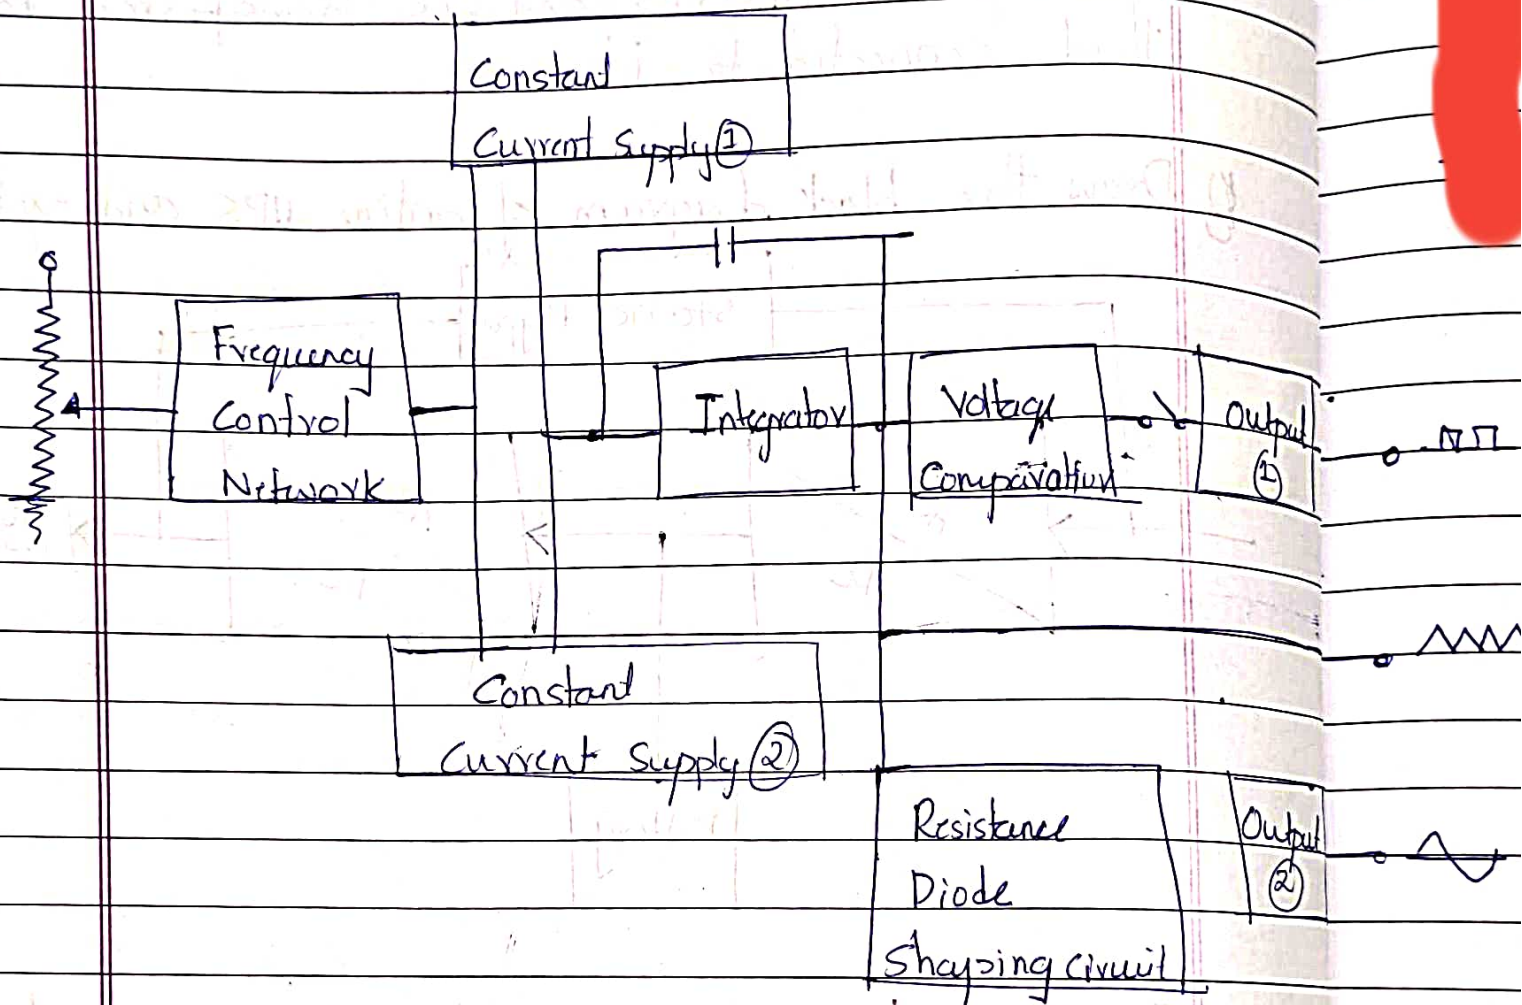 Constant
Current Supply ①
Frequency
Control
Network
Integrator
Voltage
Comparation
Output
①
Constant
Current Supply ②
Resistance
Diode
Shaping circuit
Output
②